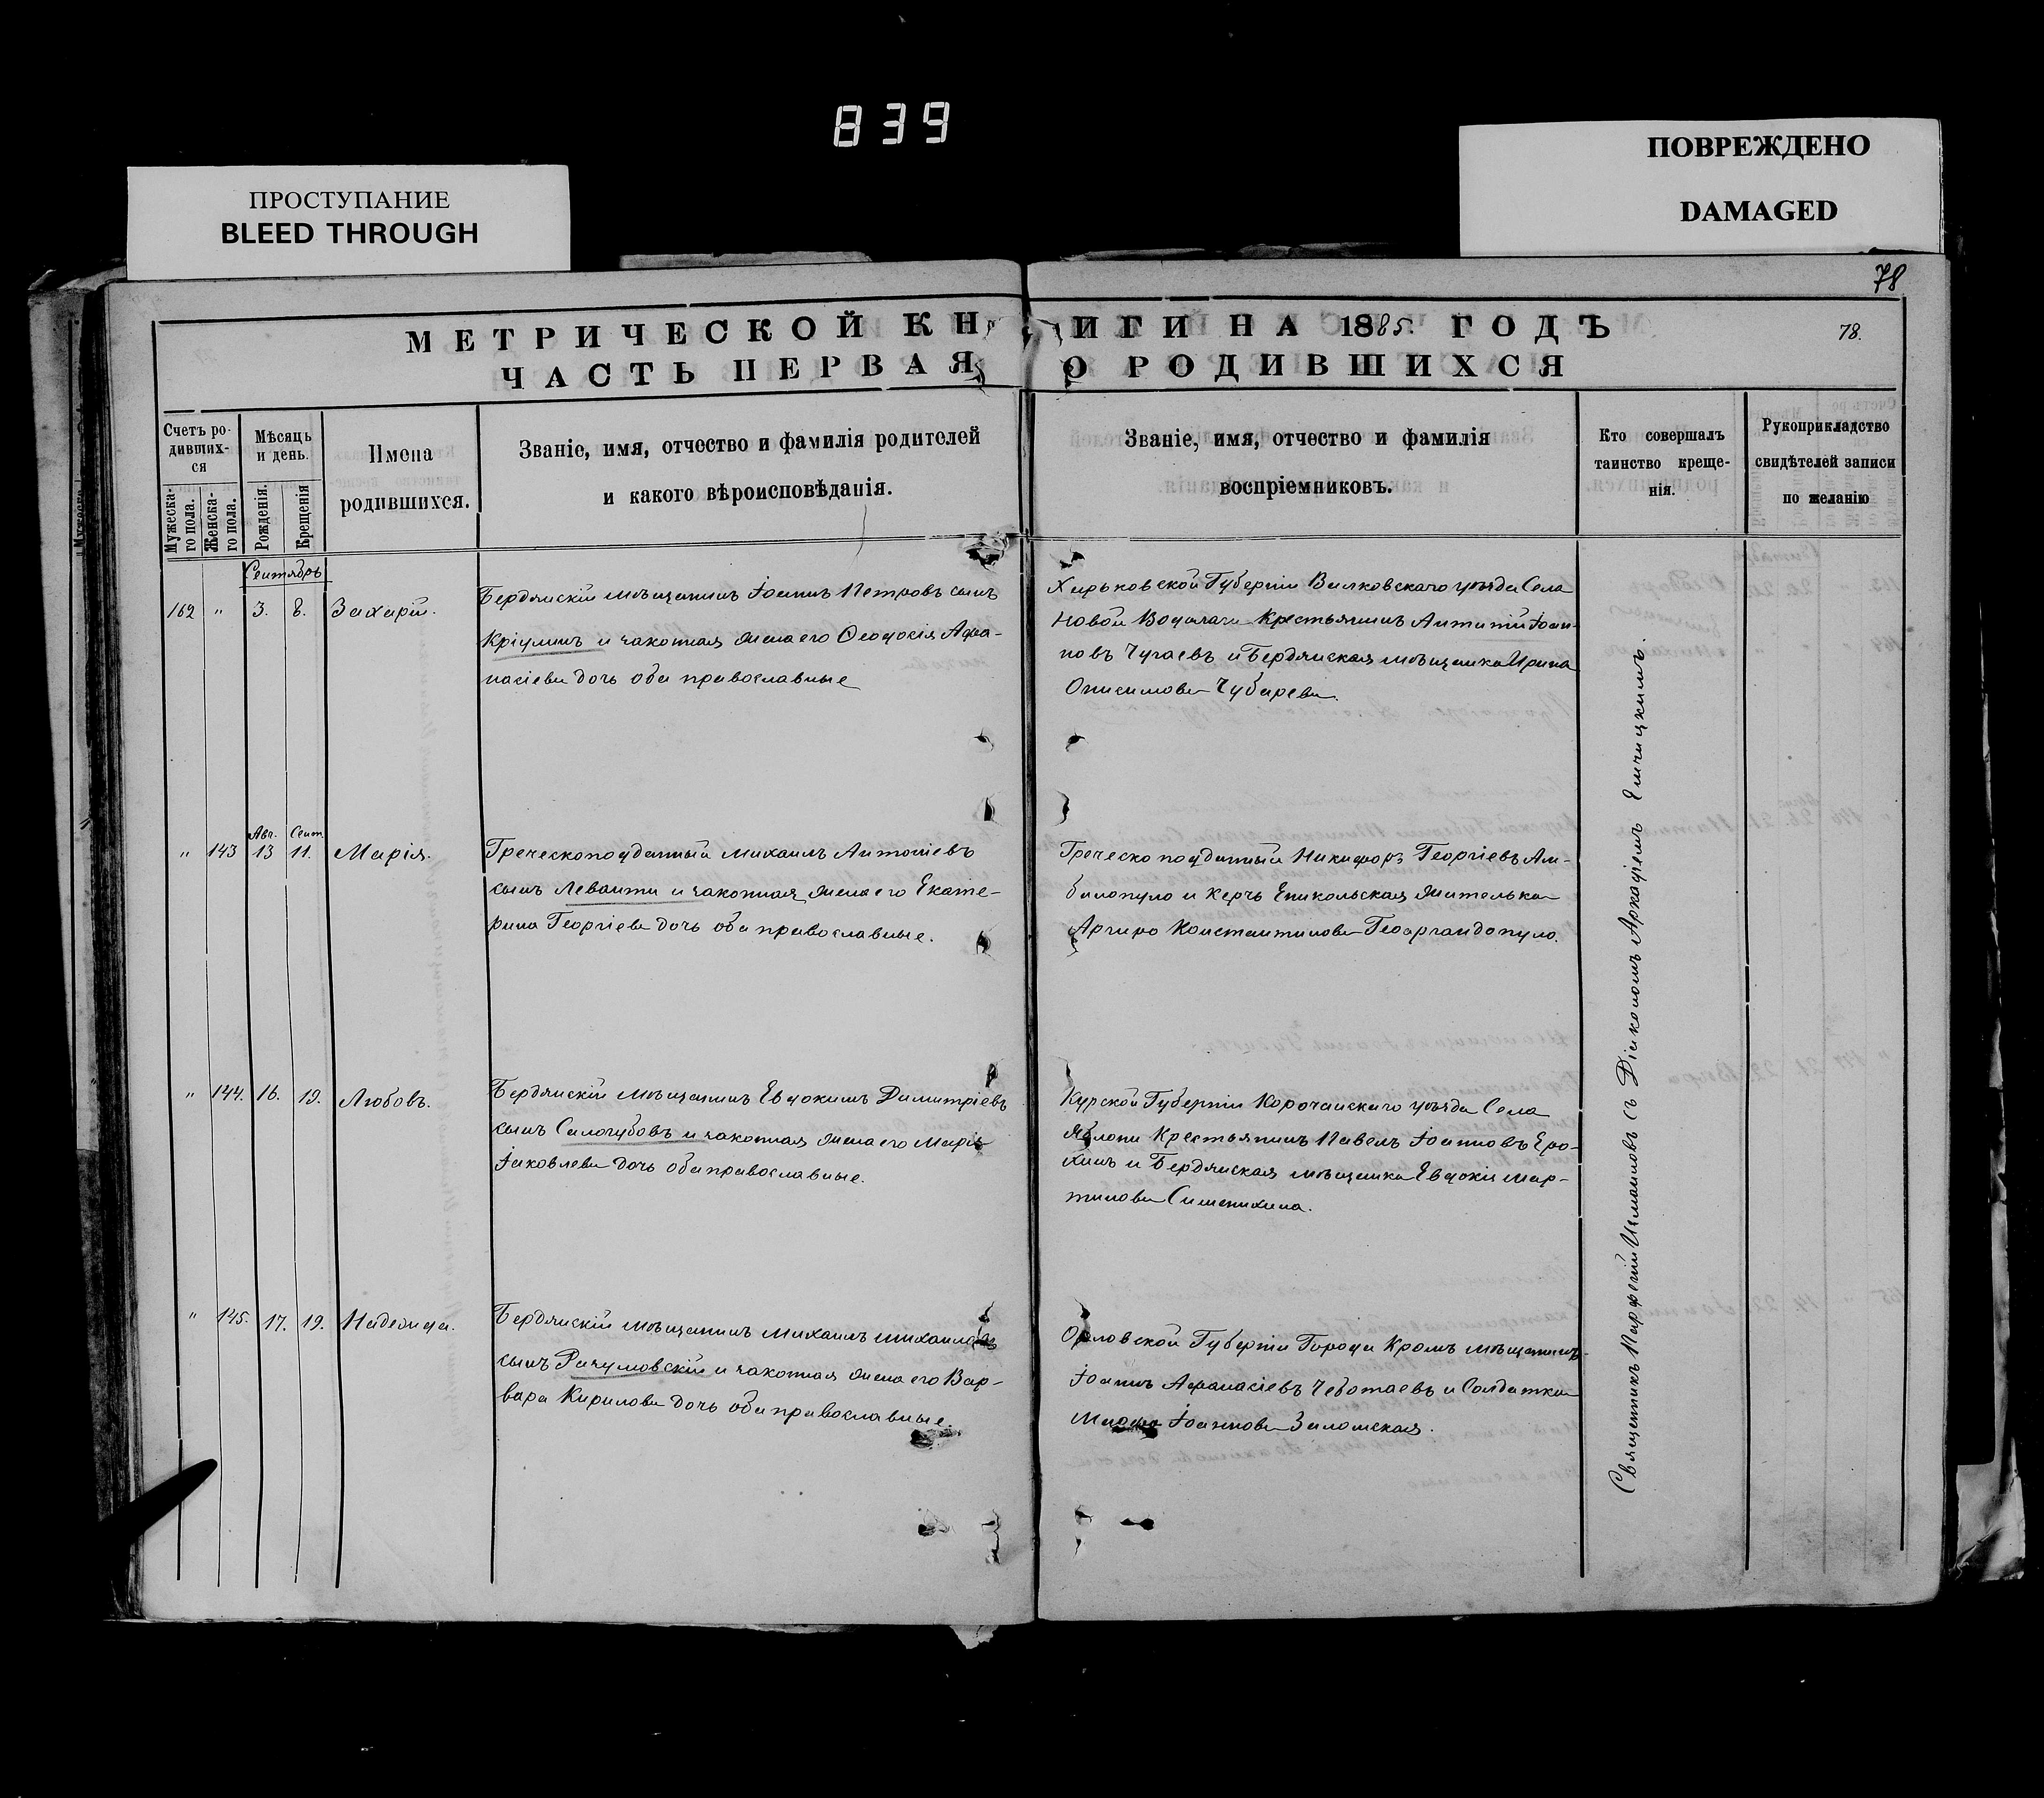 839
ПРОСТУПАНИЕ
BLEED THROUGH
ПОВРЕЖДЕНО
DAMAGED
78
МЕТРИЧЕСКОЙ КНИГИ НА 1885. ГОДЪ
78.
ЧАСТЬ ПЕРВАЯ О РОДИВШИХСЯ
Счетъ ро-
дивших-
ся
Мужеска-
го пола.
Женска-
го пола.
Мѣсяцъ
и день.
Рожденія.
Крещенія
Имена
родившихся.
Званіе, имя, отчество и фамилія родителей
и какого вѣроисповѣданія.
Званіе, имя, отчество и фамилія
воспріемниковъ.
Кто совершалъ
таинство креще-
нія.
Рукоприкладство
свидѣтелей записи
по желанію
Сентябрь
162 " 3. 8. Захарій.
Бердянскій мѣщанинъ Іоаннъ Петровъ сынъ
Кріулинъ и законная жена его Ѳеодосія Афа-
насіева дочь оба православные
Харьковской Губерніи Валковскаго уѣзда Села
Новой Водолаги Крестьянинъ Антипій Іоан-
новъ Чугаевъ и Бердянская мѣщанка Ирина
Онисимова Чубарева.
Авг. Сент.
" 143 13 11. Марія.
Греческоподданный Михаилъ Антоніевъ
сынъ Леванти и законная жена его Екате-
рина Георгіева дочь оба православные.
Греческо подданный Никифоръ Георгіевъ Ам-
билопуло и Керчь Еникольская жителька
Аргиро Константинова Георгандопуло.
" 144. 16. 19. Любовъ.
Бердянскій мѣщанинъ Евдокимъ Димитріевъ
сынъ Салогубовъ и законная жена его Марія
Іаковлева дочь оба православные.
Курской Губерніи Корочанскаго уѣзда Села
Яблони Крестьянинъ Павелъ Іоанновъ Еро-
хинъ и Бердянская мѣщанка Евдокія Мар-
тинова
" 145. 17. 19. Надежда.
Бердянскій мѣщанинъ Михаилъ Михаиловъ
сынъ Разумовскій и законная жена его Вар-
вара Кирилова дочь оба православные.
Орловской Губерніи Города Кромъ мѣщанинъ
Іоаннъ Афанасіевъ Чеботаевъ и Солдатка
Марфа Іоаннова Заломская.
Священникъ Парфеній съ Діакономъ Аркадіемъ